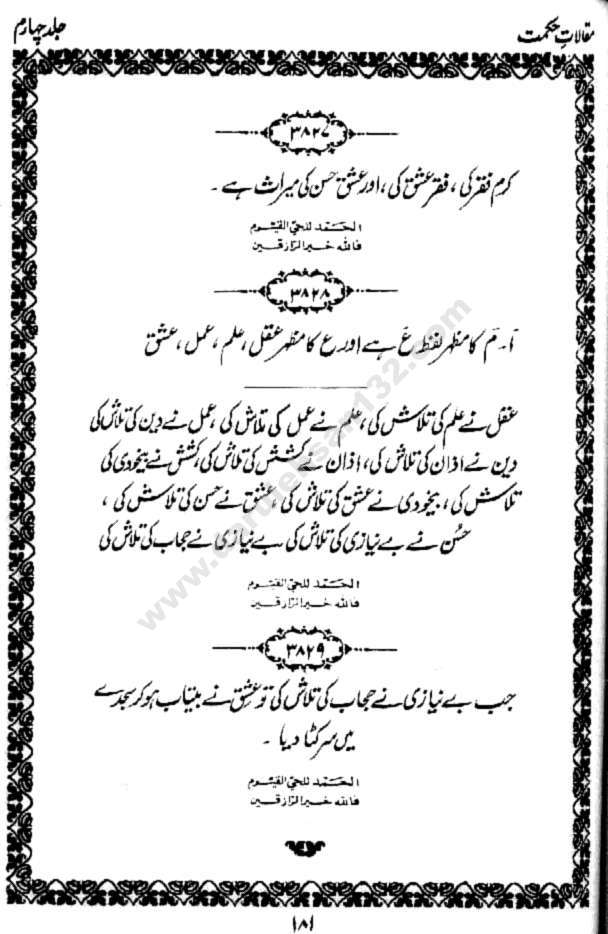 مقالاتِ حکمت
جلد چہارم
۳۸۲۷
کرم فقر کی ، فقر عشق کی ، اور عشق حسن کی میراث ہے ۔
الحَمد للحيّ القيّوم
فالله خير الرّازقين
۳۸۲۸
آ ۔ مَ کا مظہر لفظ عَ ہے اور ع کا مظہر عقل ، علم ، عمل ، عشق
عقل نے علم کی تلاش کی ، علم نے عمل کی تلاش کی ، عمل نے دین کی تلاش کی
دین نے اذان کی تلاش کی ، اذان نے کشش کی تلاش کی ، کشش نے بیخودی کی
تلاش کی ، بیخودی نے عشق کی تلاش کی ، عشق نے حسن کی تلاش کی ،
حُسن نے بے نیازی کی تلاش کی ۔ بے نیازی نے حجاب کی تلاش کی
الحَمد للحيّ القيّوم
فالله خير الرّازقين
۳۸۲۹
جب بے نیازی نے حجاب کی تلاش کی تو عشق نے بیتاب ہو کر سجدے
میں سر کٹا دیا ۔
الحَمد للحيّ القيّوم
فالله خير الرّازقين
۱۸۱